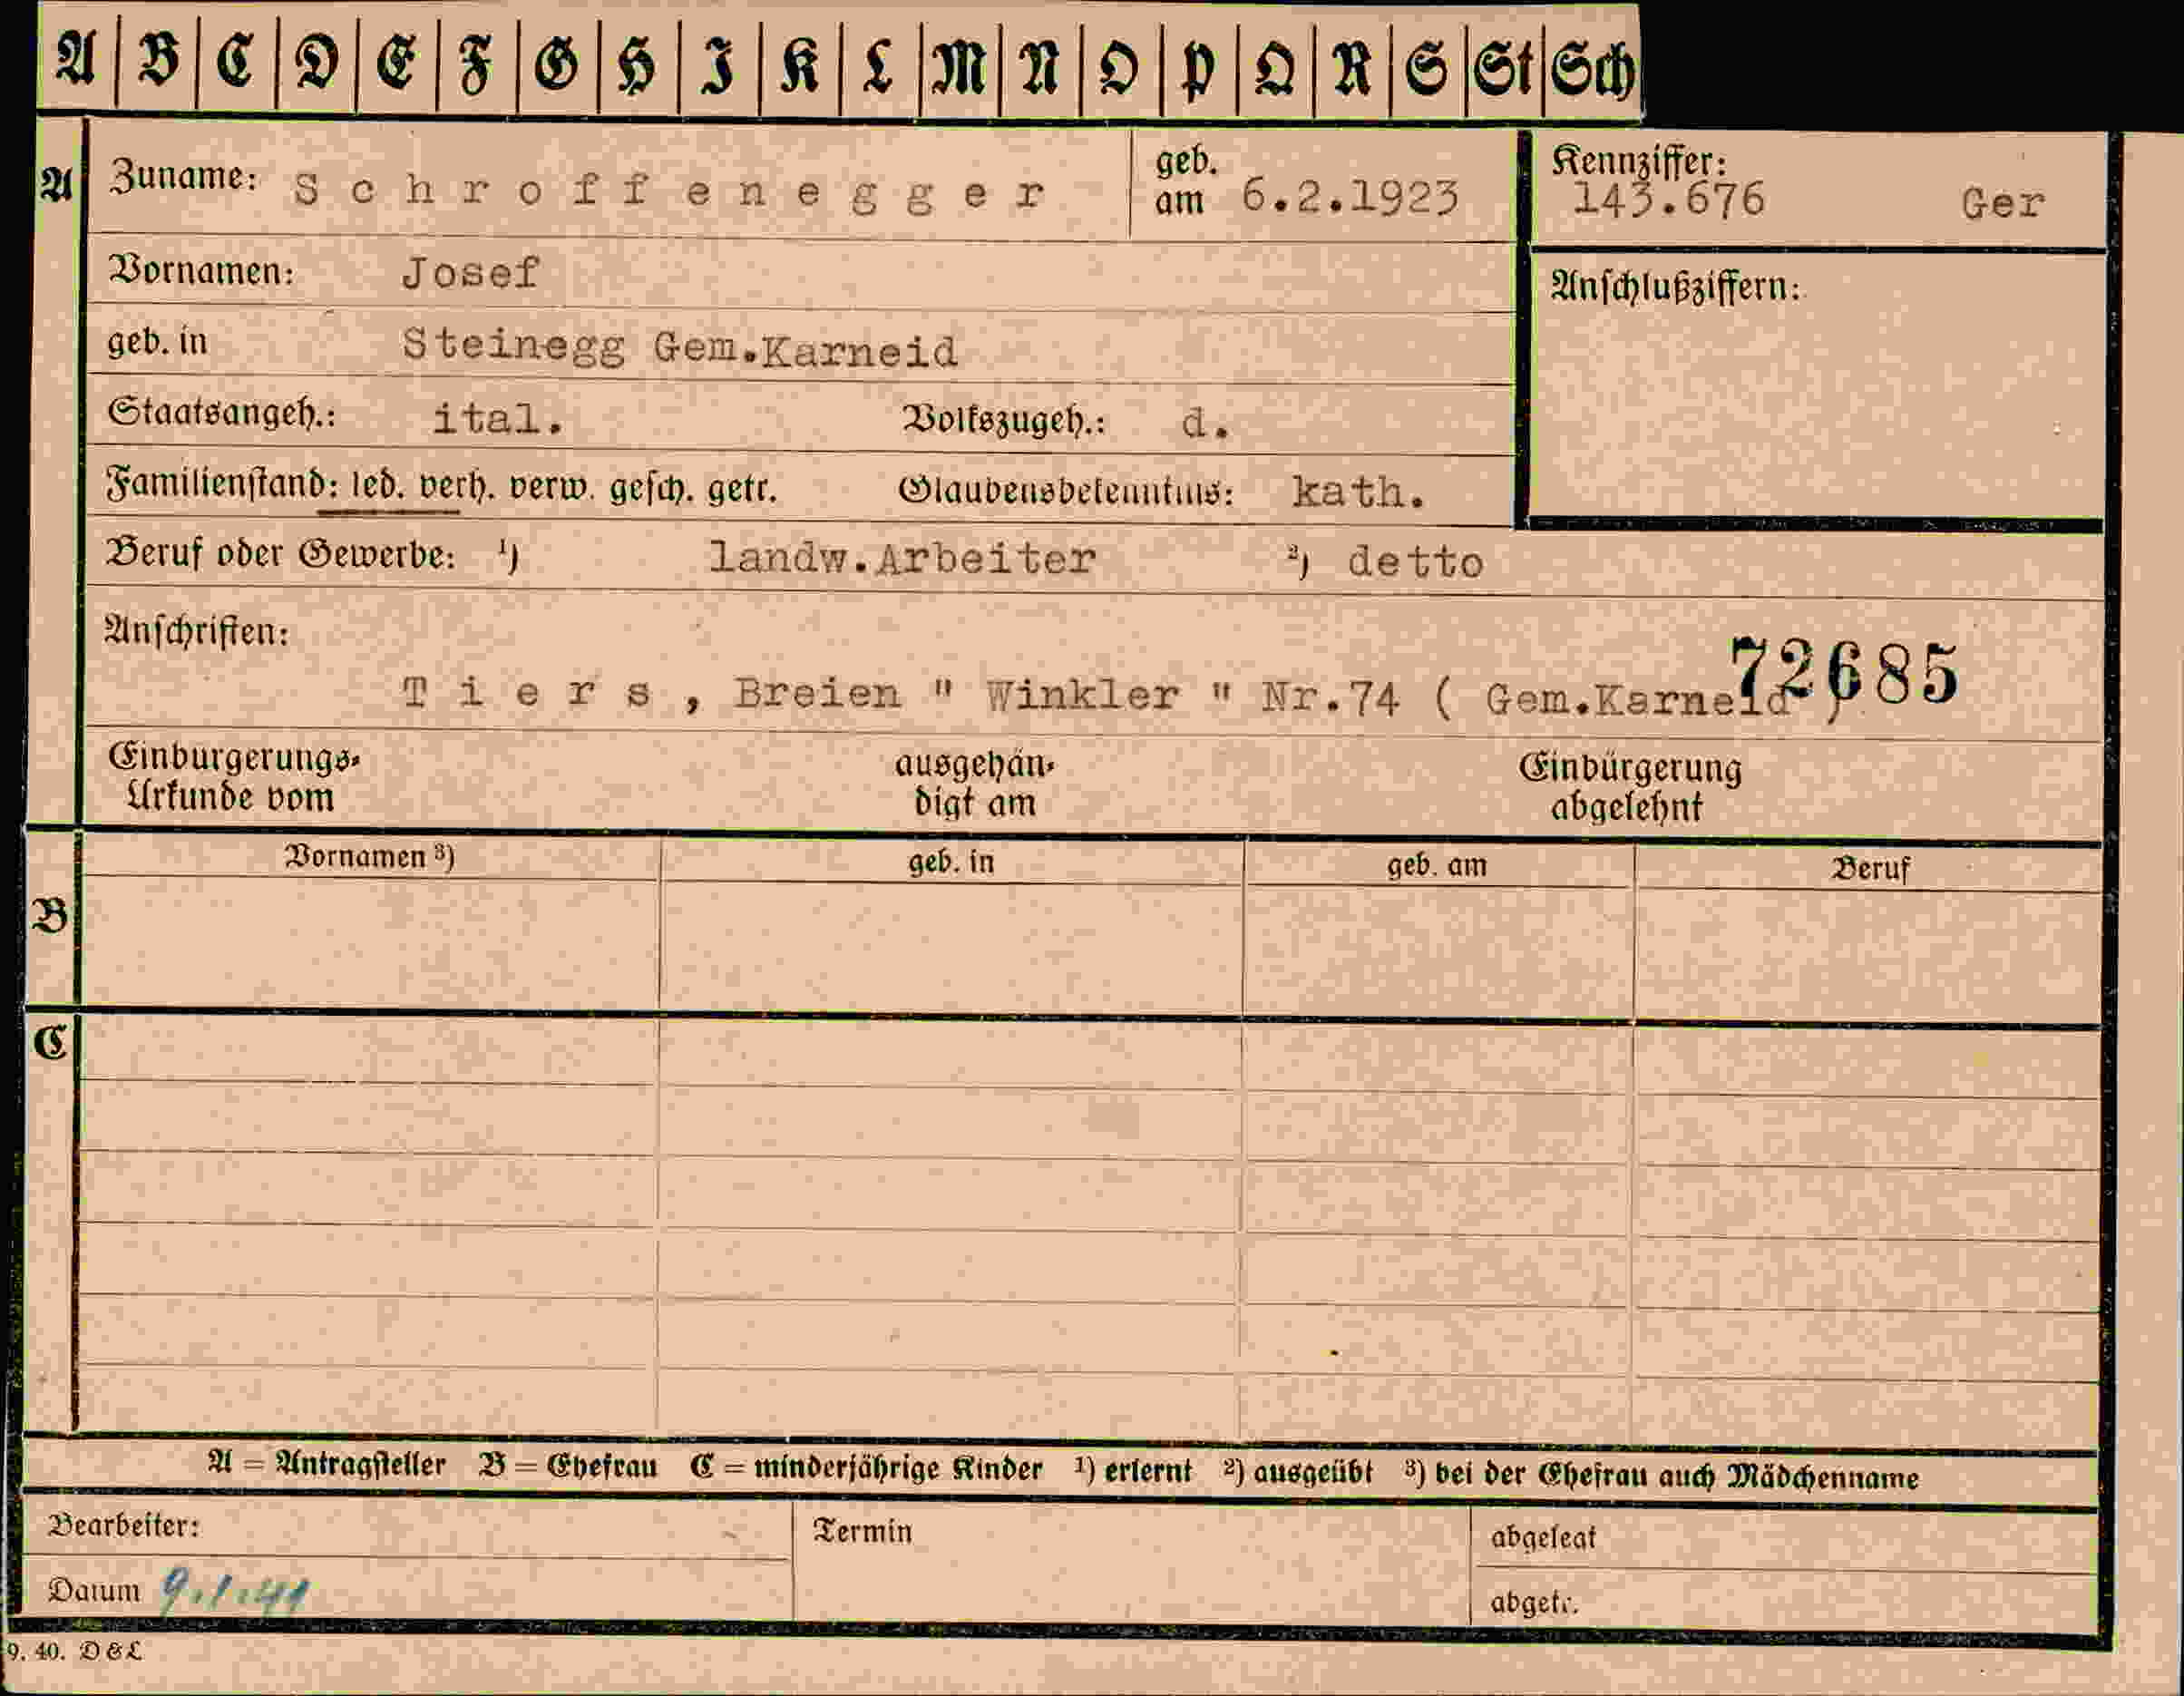 A B C D E F G H I K L M N O P Q R S St Sch
A Zuname: Schroffenegger geb. am 6.2.1923 Kennziffer: 143.676 Ger
Vornamen: Josef Anschlußziffern:
geb. in Steinegg Gem.Karneid
Staatsangeh.: ital. Volkszugeh.: d.
Familienstand: led. verh. verw. gesch. getr. Glaubensbekenntnis: kath.
Beruf oder Gewerbe: ¹) landw.Arbeiter ²) detto
Anschriften:
72685
Tiers, Breien " Winkler " Nr.74 ( Gem.Karneid )
Einbürgerungs- ausgehän- Einbürgerung
Urkunde vom digt am abgelehnt
Vornamen ³) geb. in geb. am Beruf
B
C
A = Antragsteller B = Ehefrau C = minderjährige Kinder ¹) erlernt ²) ausgeübt ³) bei der Ehefrau auch Mädchenname
Bearbeiter: Termin abgelegt
Datum 9.1.41 abgetr.
9. 40. D&L